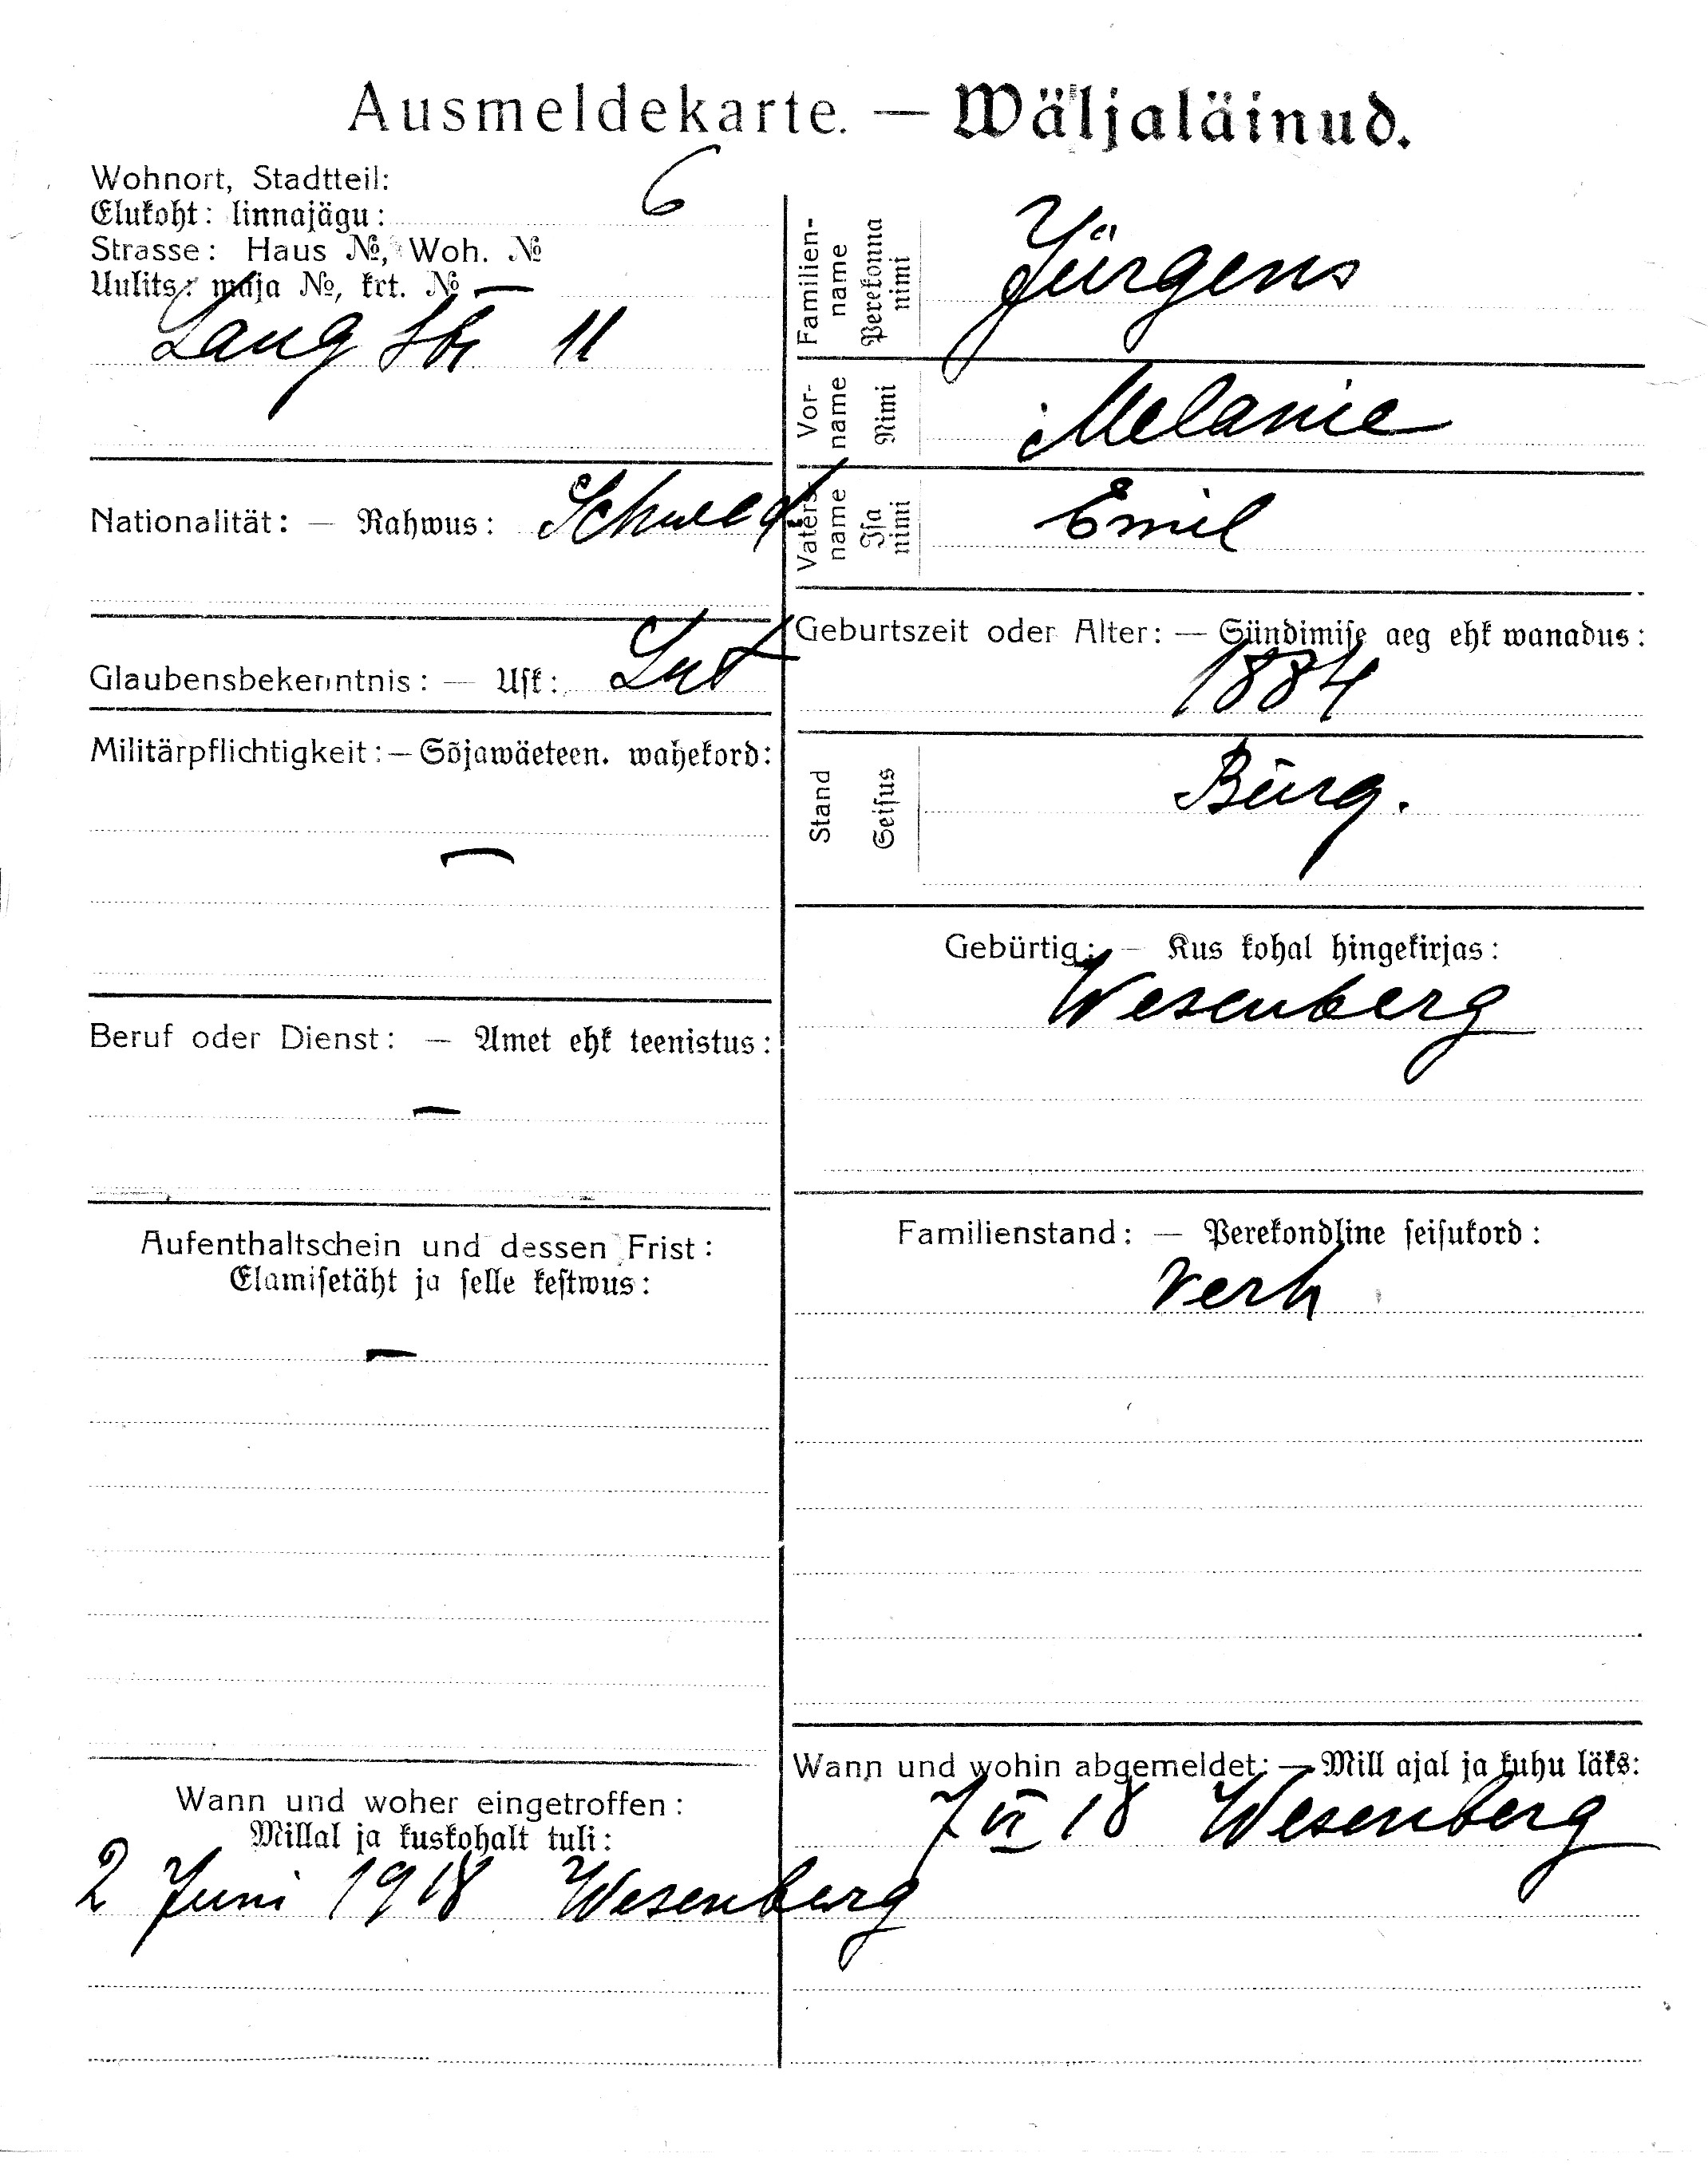 Ausmeldekarte. — Wäljaläinud.
Wohnort, Stadtteil:
Elukoht: linnajägu: 6
Strasse: Haus №, Woh. №
Uulits: maja №, krt. № —
Lang Str 11
Nationalität: — Rahwus: Schwed
Glaubensbekenntnis: — Usk: Lut
Militärpflichtigkeit: — Sõjawäeteen. wahekord:
—
Beruf oder Dienst: — Amet ehk teenistus:
—
Aufenthaltschein und dessen Frist:
Elamisetäht ja selle kestwus:
—
Wann und woher eingetroffen:
Millal ja kuskohalt tuli:
2 Juni 1918 Wesenberg
Familien-
name
Perekonna
nimi
Jürgens
Vor-
name
Nimi
Melanie
Vaters-
name
Isa
nimi
Emil
Geburtszeit oder Alter: — Sündimise aeg ehk wanadus:
1884
Stand
Seisus
Bürg.
Gebürtig: — Kus kohal hingekirjas:
Wesenberg
Familienstand: — Perekondline seisukord:
verh
Wann und wohin abgemeldet: — Mill ajal ja kuhu läks:
7 VI 18 Wesenberg